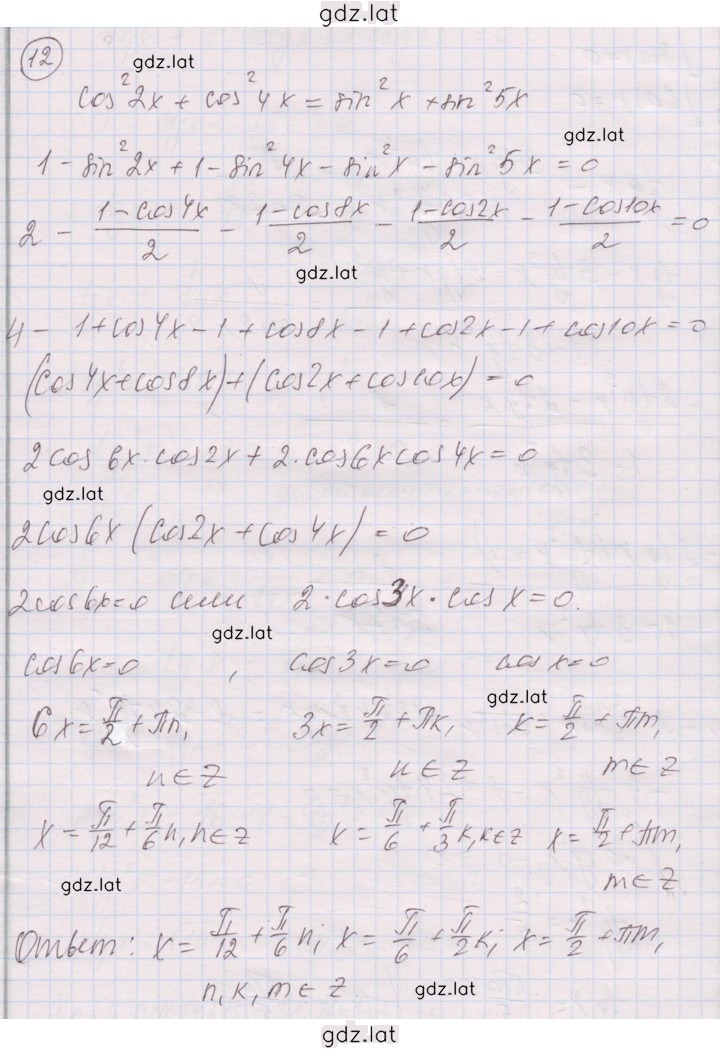 gdz.lat
12
gdz.lat
cos²2x + cos²4x = sin²x + sin²5x
gdz.lat
1 - sin²2x + 1 - sin²4x - sin²x - sin²5x = 0
2 - (1-cos4x)/2 - (1-cos8x)/2 - (1-cos2x)/2 - (1-cos10x)/2 = 0
gdz.lat
4 - 1+cos4x - 1 + cos8x - 1 + cos2x - 1 + cos10x = 0
(cos4x+cos8x)+(cos2x+cos10x) = 0
2cos 6x·cos2x + 2·cos6x cos4x = 0
gdz.lat
2cos6x (cos2x + cos4x) = 0
2cos6x=0 или 2·cos3x·cos x = 0.
gdz.lat
cos6x=0, cos3x=0 cos x=0
gdz.lat
6x = π/2 + πn, 3x = π/2 + πk, x = π/2 + πm,
n ∈ Z k ∈ Z m ∈ Z
x = π/12 + π/6 n, n ∈ Z x = π/6 + π/3 k, k ∈ Z x = π/2 + πm,
gdz.lat m ∈ Z
Ответ: x = π/12 + π/6 n; x = π/6 + π/2 k; x = π/2 + πm,
n, k, m ∈ Z
gdz.lat
gdz.lat